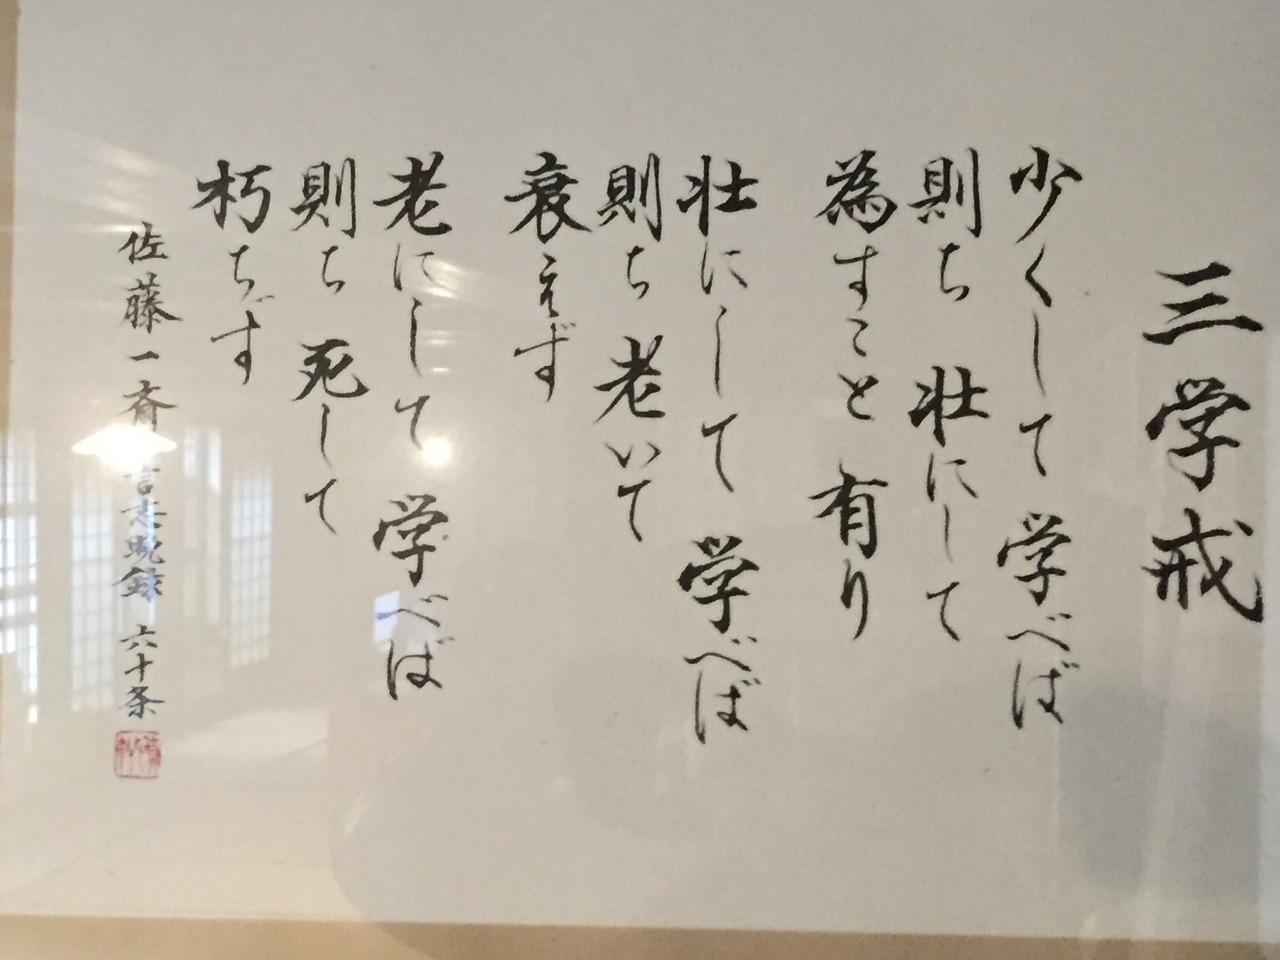 三学戒
少くして学べば
則ち壮にして
為すこと有り
壮にして学べば
則ち老いて
衰えず
老にして学べば
則ち死して
朽ちず
佐藤一斎 言志晩録 六十条